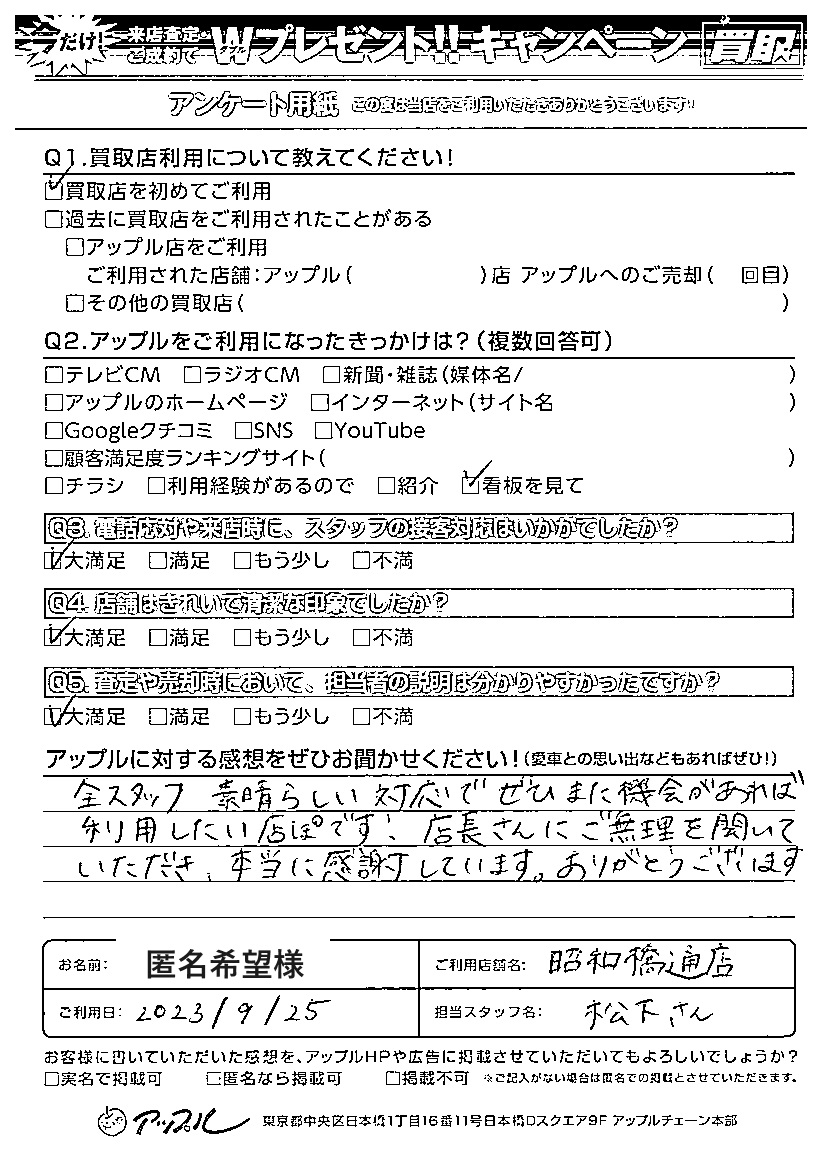 だけ! 来店査定・ご成約で Wダブルプレゼント!!キャンペーン 買取
アンケート用紙 この度は当店をご利用いただきありがとうございます!!
Q1.買取店利用について教えてください!
☑買取店を初めてご利用
□過去に買取店をご利用されたことがある
□アップル店をご利用
ご利用された店舗:アップル( )店 アップルへのご売却( 回目)
□その他の買取店( )
Q2.アップルをご利用になったきっかけは?(複数回答可)
□テレビCM □ラジオCM □新聞・雑誌(媒体名/ )
□アップルのホームページ □インターネット(サイト名 )
□Googleクチコミ □SNS □YouTube
□顧客満足度ランキングサイト( )
□チラシ □利用経験があるので □紹介 ☑看板を見て
Q3.電話応対や来店時に、スタッフの接客対応はいかがでしたか?
☑大満足 □満足 □もう少し □不満
Q4.店舗はきれいで清潔な印象でしたか?
☑大満足 □満足 □もう少し □不満
Q5.査定や売却時において、担当者の説明は分かりやすかったですか?
☑大満足 □満足 □もう少し □不満
アップルに対する感想をぜひお聞かせください!(愛車との思い出などもあればぜひ!)
全スタッフ 素晴らしい対応でぜひまた機会があれば
利用したい店ぽです! 店長さんにご無理を聞いて
いただき、本当に感謝しています。ありがとうございます
お名前: 匿名希望様 ご利用店舗名: 昭和橋通店
ご利用日: 2023/9/25 担当スタッフ名: 松下さん
お客様に書いていただいた感想を、アップルHPや広告に掲載させていただいてもよろしいでしょうか?
□実名で掲載可 □匿名なら掲載可 □掲載不可 ※ご記入がない場合は匿名での掲載とさせていただきます。
アップル 東京都中央区日本橋1丁目16番11号日本橋Dスクエア9F アップルチェーン本部